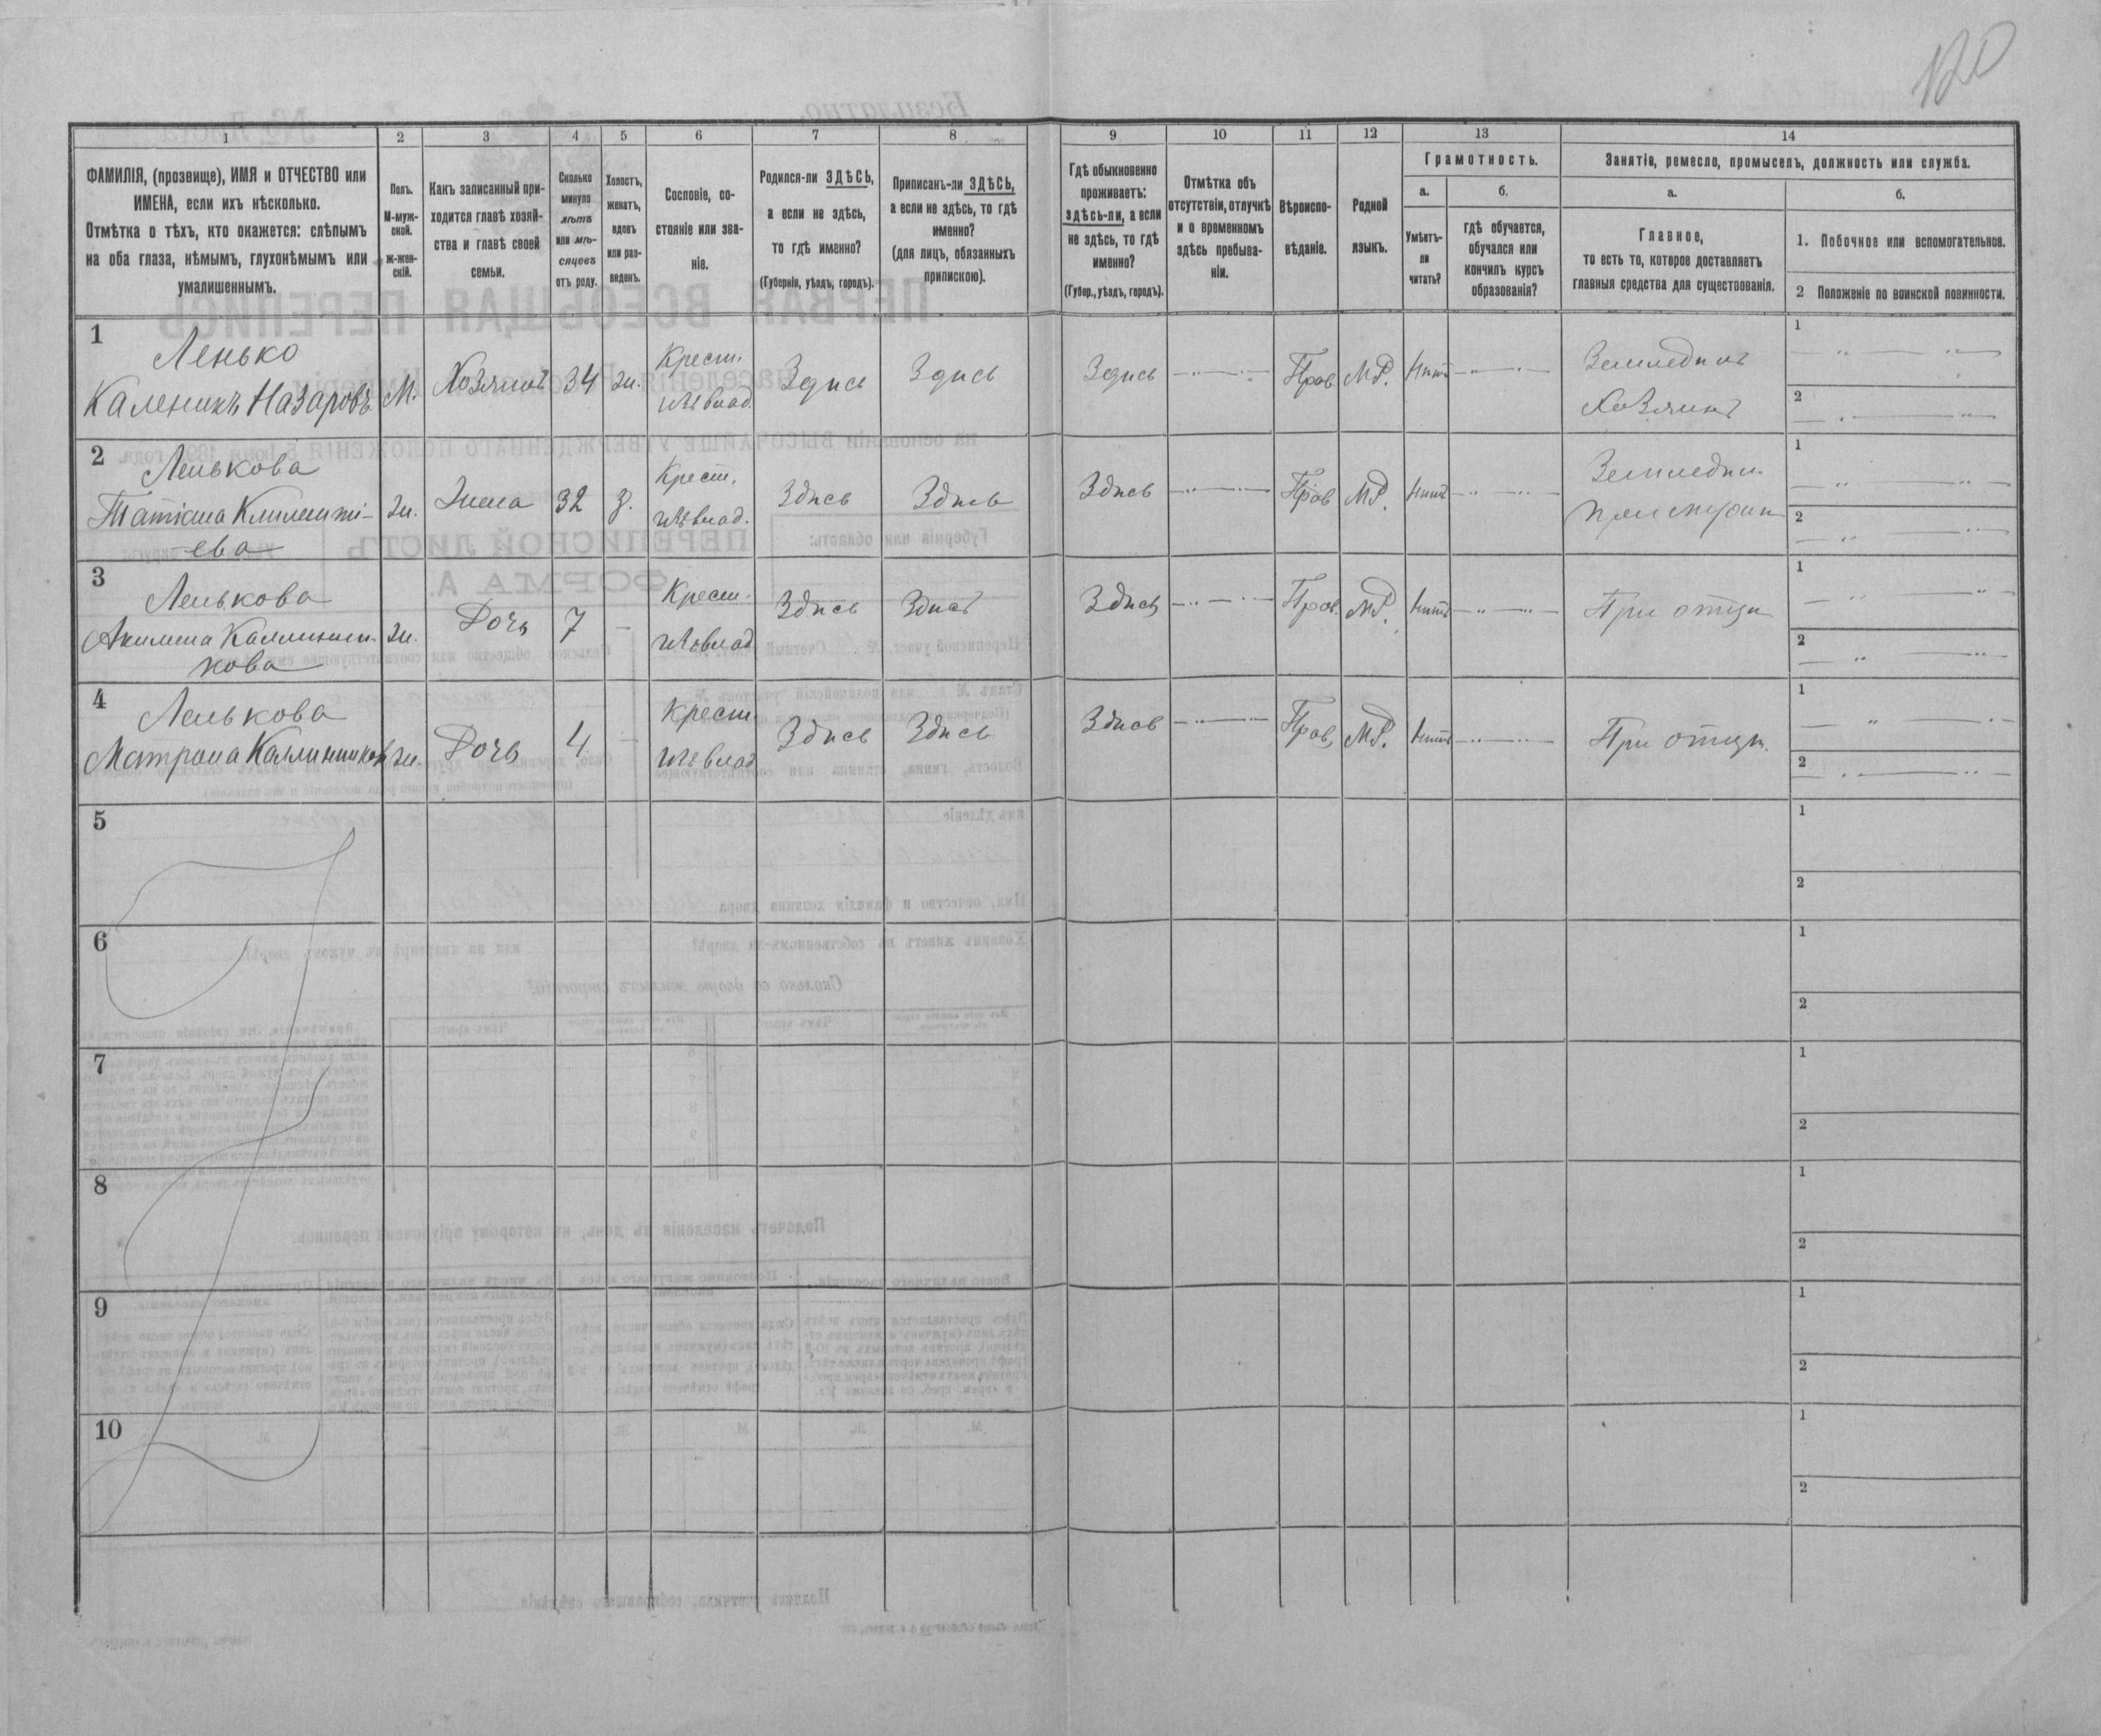 120
1
2
3
4
5
6
7
8
9
10
11
12
13
14
ФАМИЛІЯ, (прозвище), ИМЯ и ОТЧЕСТВО или
ИМЕНА, если ихъ нѣсколько.
Отмѣтка о тѣхъ, кто окажется: слѣпымъ
на оба глаза, нѣмымъ, глухонѣмымъ или
умалишеннымъ.
Полъ.
М-муж-
ской.
Ж-жен-
скій.
Какъ записанный при-
ходится главѣ хозяй-
ства и главѣ своей
семьи.
Сколько
минуло
лѣтъ
или мѣ-
сяцевъ
отъ роду.
Холостъ,
женатъ,
вдовъ
или раз-
веденъ.
Сословіе, со-
стояніе или зва-
ніе.
Родился-ли ЗДѢСЬ,
а если не здѣсь,
то гдѣ именно?
(Губернія, уѣздъ, городъ).
Приписанъ-ли ЗДѢСЬ,
а если не здѣсь, то гдѣ
именно?
(для лицъ, обязанныхъ
припискою).
Гдѣ обыкновенно
проживаетъ:
здѣсь-ли, а если
не здѣсь, то гдѣ
именно?
(Губер., уѣздъ, городъ).
Отмѣтка объ
отсутствіи, отлучкѣ
и о временномъ
здѣсь пребыва-
ніи.
Вѣроиспо-
вѣданіе.
Родной
языкъ.
Грамотность.
а.
Умѣетъ-
ли
читать?
б.
гдѣ обучается,
обучался или
кончилъ курсъ
образованія?
Занятіе, ремесло, промыселъ, должность или служба.
а.
Главное,
то есть то, которое доставляетъ
главныя средства для существованія.
б.
1. Побочное или вспомогательное.
2 Положеніе по воинской повинности.
1
Ленько
Каленикъ Назаровъ
М.
Хозяинъ
34
ж.
Крест.
Здѣсь
Здѣсь
Здѣсь
Прав
МР.
Нѣтъ
Земледѣл
Хозяинъ
1
2
2
Ленькова
Татіана
ева
ж.
Жена
32
з.
Крест.
Здѣсь
Здѣсь
Здѣсь
Прав
МР.
Нѣтъ
Земледѣл.
1
2
3
Ленькова
кова
ж.
Дочь
7
Крест.
Здѣсь
Здѣсь
Здѣсь
Прав.
МР.
Нѣтъ
При отцѣ
1
2
4
Ленькова
Матрона Каллиников
ж.
Дочь
4
Крест
Здѣсь
Здѣсь
Здѣсь
Прав.
МР.
Нѣтъ
При отцѣ.
1
2
5
1
2
6
1
2
7
1
2
8
1
2
9
1
2
10
1
2